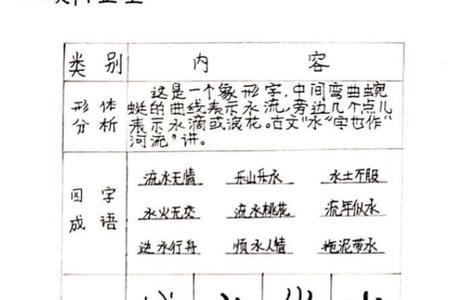 类别 内容
形体 这是一个象形字,中间弯曲蜿
分析 蜒的曲线表示水流,旁边几个点儿
表示水滴或浪花。古文"水"字也作"
河流"讲。
四字 流水无情 乐山乐水 水土不服
成语 水火无交 流水桃花 流年似水
逆水行舟 顺水人情 拖泥带水